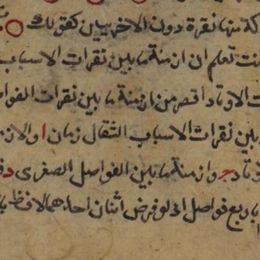 كة منها نقرة دون الاخريين كقولك
نت تعلم ان ازمنة ما بين نقرات الاسباب
ت الاوتاد اقصر من ازمنة ما بين نقرات الفوا
بين نقرات الاسباب الثقال زمان ا والاز
وتاد ح وازمنة ما بين الفواصل الصغرى د
باربع فواصل اذ لو فرض اثنان احدهما لافظ با